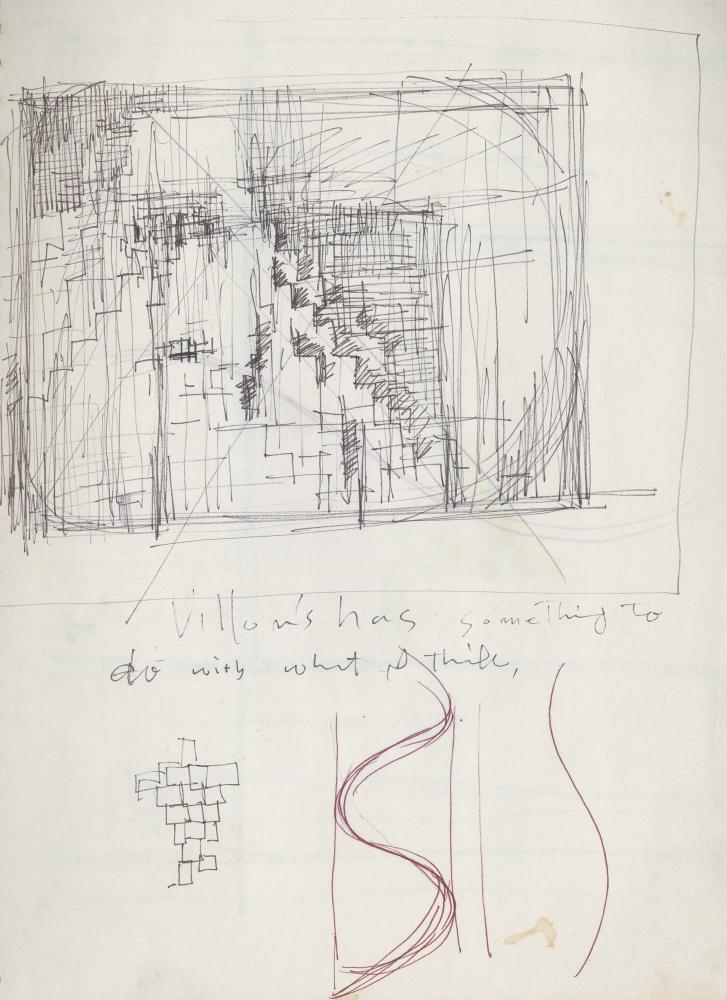 Villon's has something to
do with what I think,